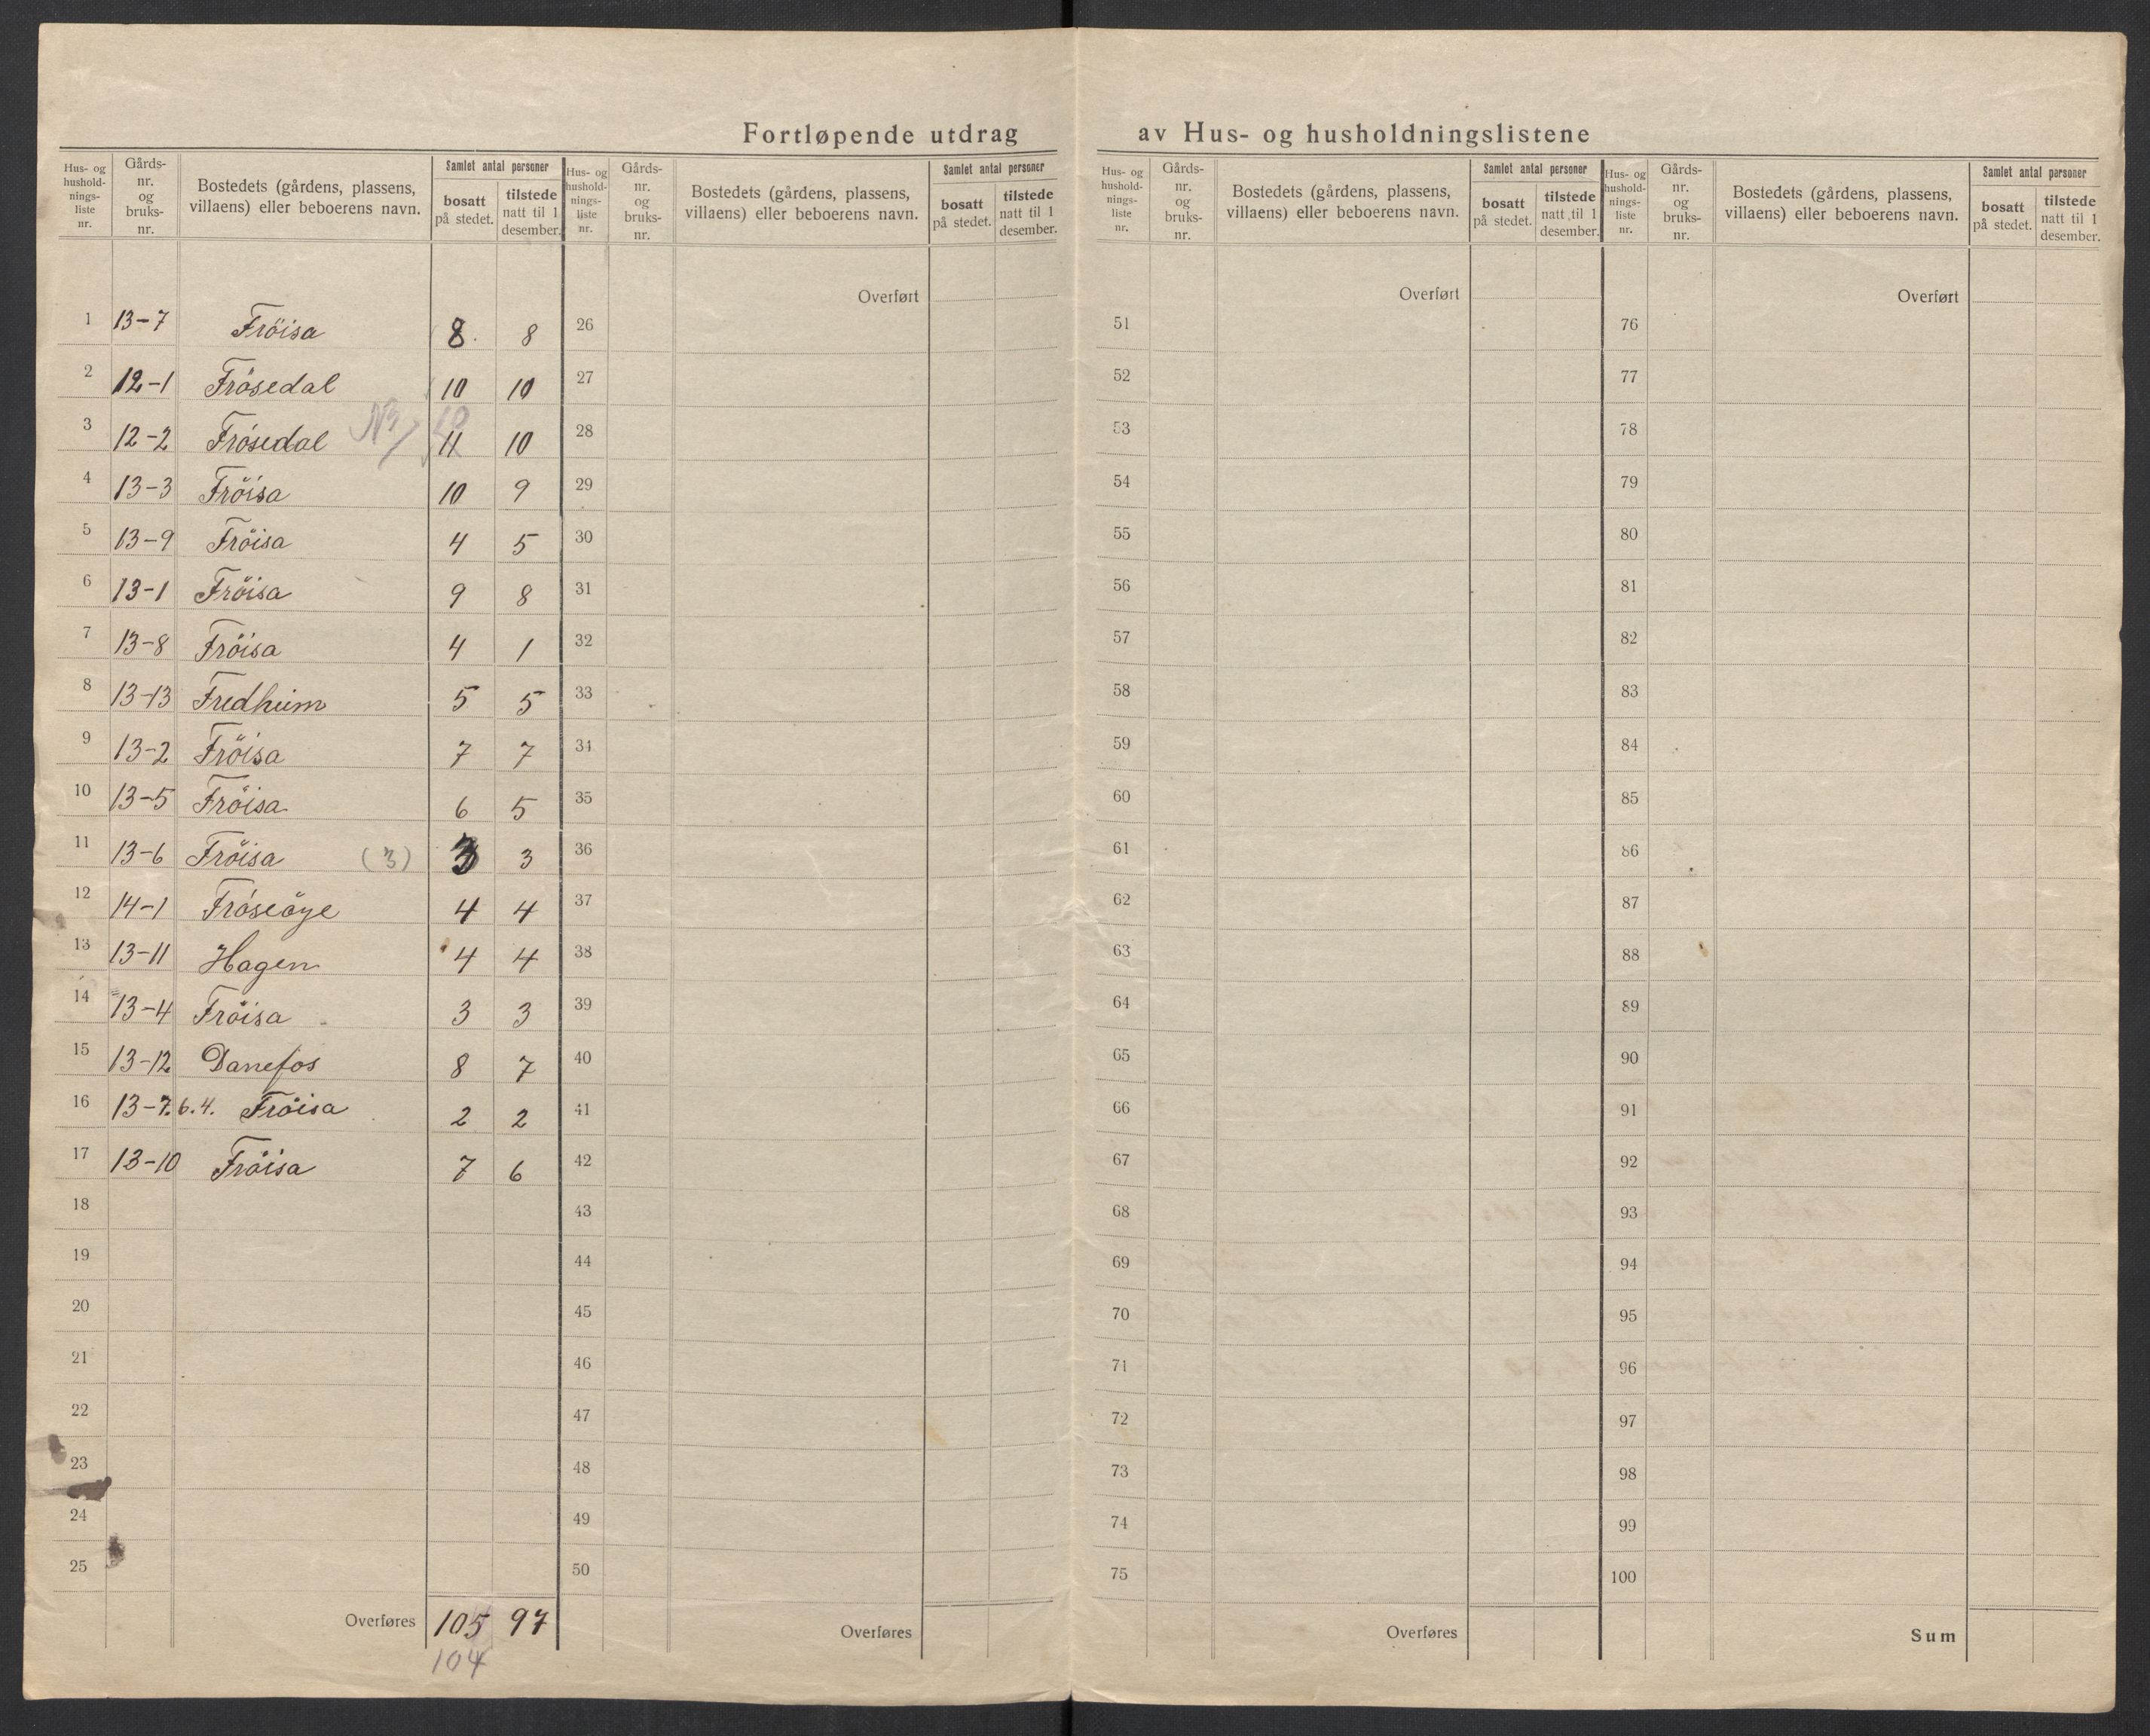 Fortløpende utdrag av Hus- og husholdningslistene
Hus- og hushold-nings-liste nr. | Gårds-nr. og bruks-nr. | Bostedets (gårdens, plassens, villaens) eller beboerens navn. | Samlet antal personer | bosatt på stedet. | tilstede natt til 1 desember.
Hus- og hushold-nings-liste nr. | Gårds-nr. og bruks-nr. | Bostedets (gårdens, plassens, villaens) eller beboerens navn. | Samlet antal personer | bosatt på stedet. | tilstede natt til 1 desember.
Hus- og hushold-nings-liste nr. | Gårds-nr. og bruks-nr. | Bostedets (gårdens, plassens, villaens) eller beboerens navn. | Samlet antal personer | bosatt på stedet. | tilstede natt til 1 desember.
Hus- og hushold-nings-liste nr. | Gårds-nr. og bruks-nr. | Bostedets (gårdens, plassens, villaens) eller beboerens navn. | Samlet antal personer | bosatt på stedet. | tilstede natt til 1 desember.
Overført Overført Overført
1 13-7 Fröisa 8 8 26 51 76
2 12-1 Frösedal 10 10 27 52 77
3 12-2 Frösedal 10 11 10 28 53 78
4 13-3 Fröisa 10 9 29 54 79
5 13-9 Fröisa 4 5 30 55 80
6 13-1 Fröisa 9 8 31 56 81
7 13-8 Fröisa 4 1 32 57 82
8 13-13 Fredheim 5 5 33 58 83
9 13-2 Fröisa 7 7 34 59 84
10 13-5 Fröisa 6 5 35 60 85
11 13-6 Fröisa (3) 3 3 36 61 86
12 14-1 Fröseöye 4 4 37 62 87
13 13-11 Hagen 4 4 38 63 88
14 13-4 Fröisa 3 3 39 64 89
15 13-12 Danefos 8 7 40 65 90
16 13-7.6.4. Fröisa 2 2 41 66 91
17 13-10 Fröisa 7 6 42 67 92
18 43 68 93
19 44 69 94
20 45 70 95
21 46 71 96
22 47 72 97
23 48 73 98
24 49 74 99
25 50 75 100
Overføres 105 97 Overføres Overføres Sum
104